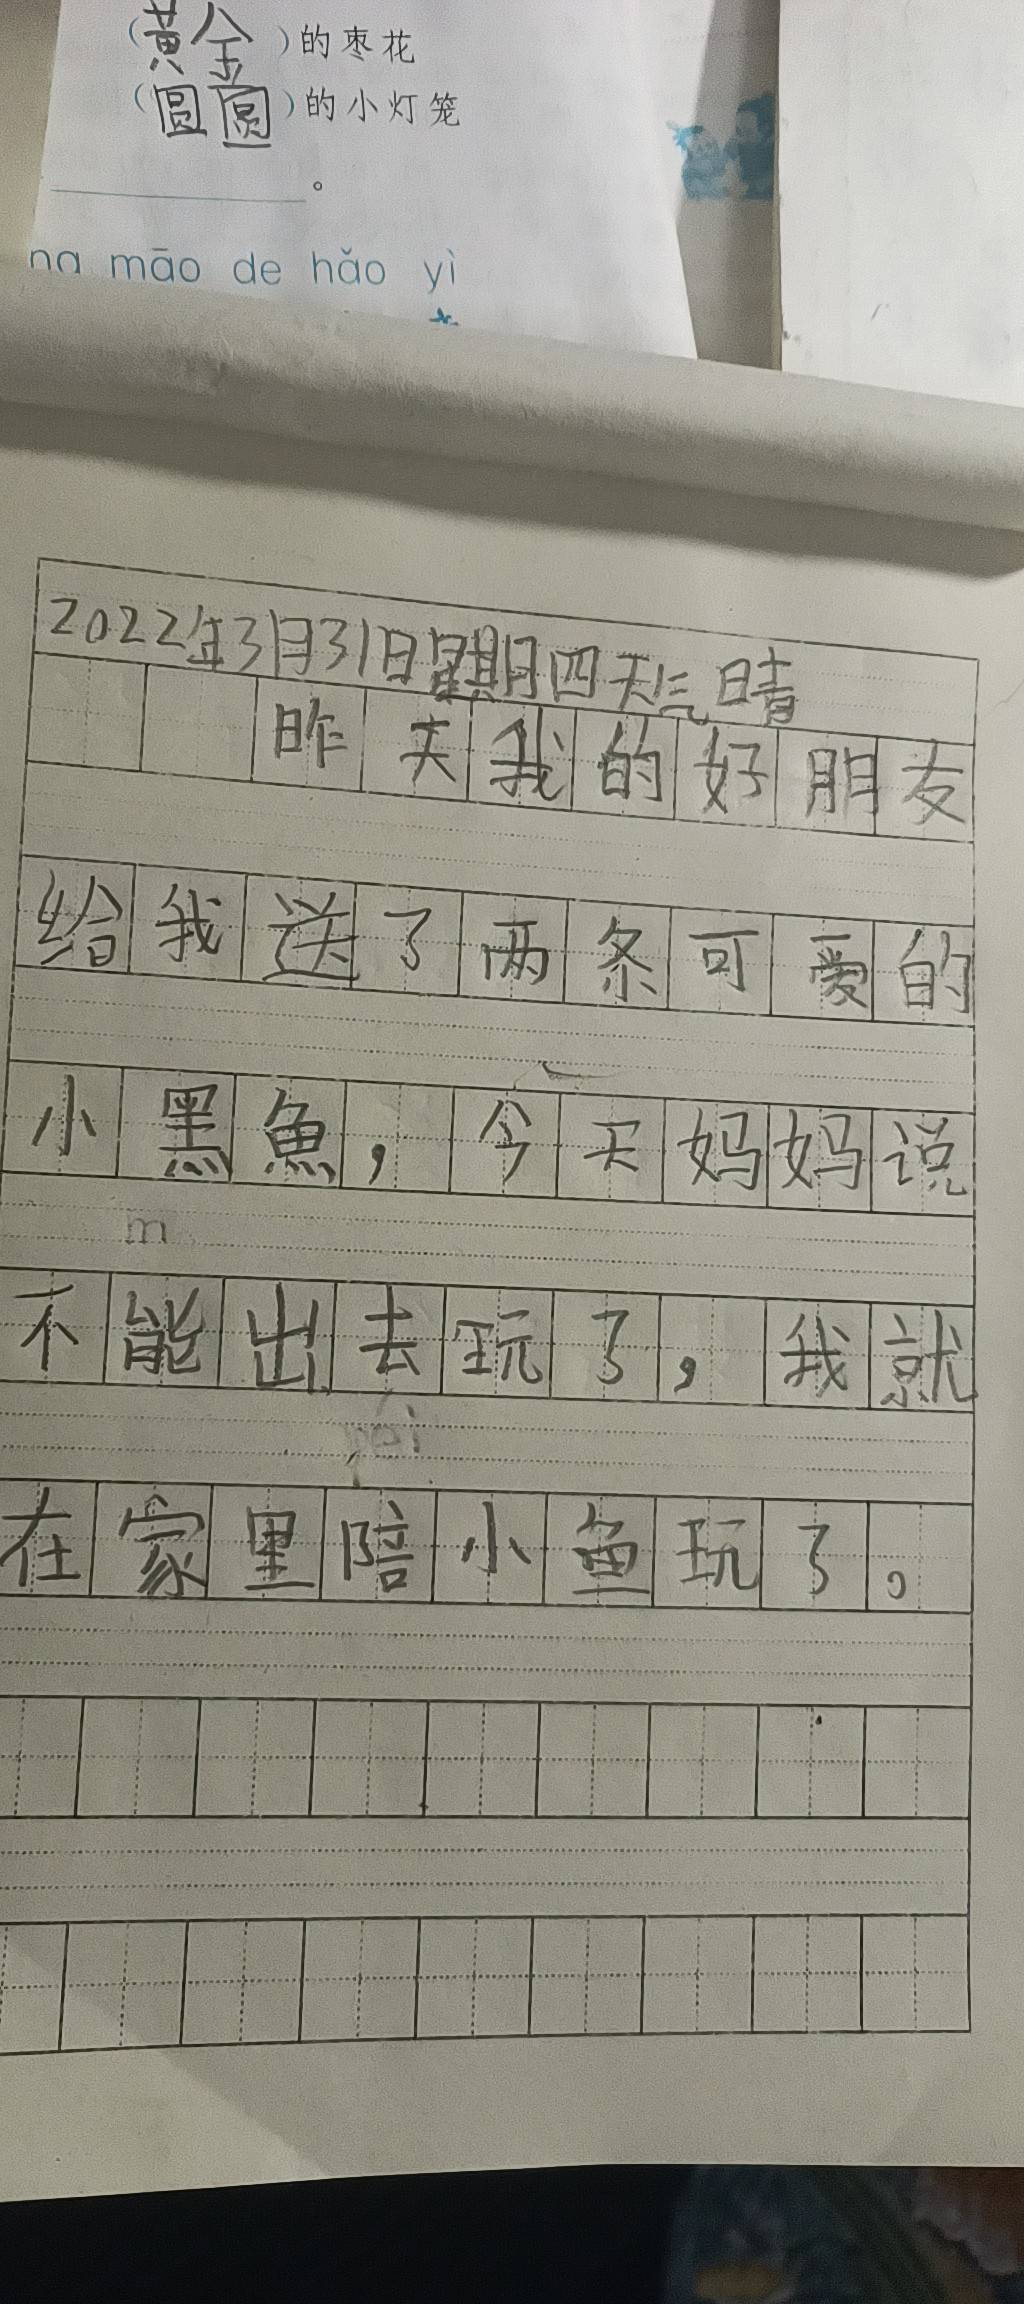 (黄金)的枣花
(圆圆)的小灯笼
。
na māo de hǎo yì
2022年3月31日星期四天气晴
昨天我的好朋友
给我送了两条可爱的
小黑魚，今天妈妈说
m
不能出去玩了，我就
péi
在家里陪小鱼玩了。